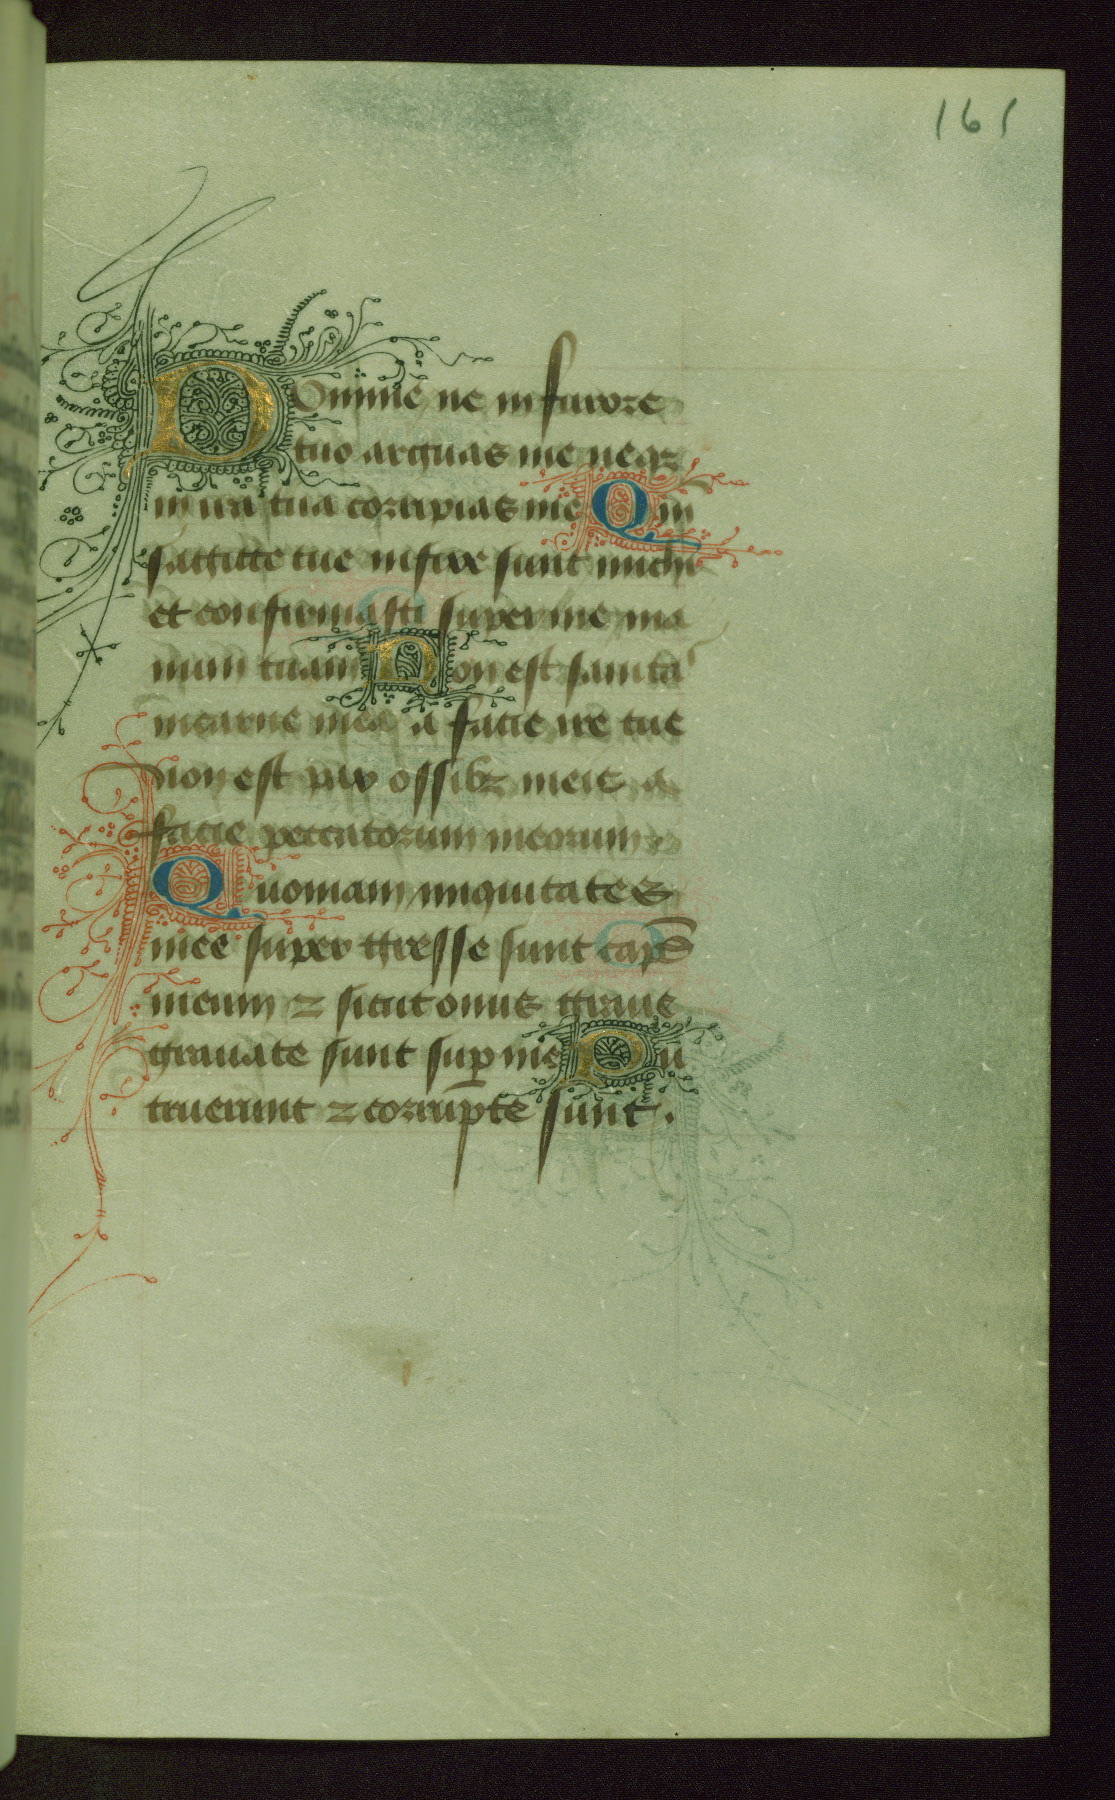 161
Domine ne in furore
tuo arguas me neqꝫ
in ira tua corripias me Qm
sagitte tue infixe sunt michi
et confirmasti super me ma
num tuam Non est sanita
incarne mea a facie ire tue
non est pax ossibꝫ meis a
facie peccatorum meorum
Quoniam iniquitates
mee super gresse sunt capđ
meum ⁊ sicut onus graue
grauate sunt suꝑ me Pu
truerunt ⁊ corrupte sunt.